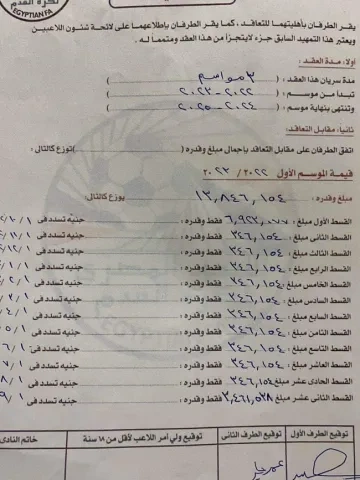 لكرة القدم
EGYPTIAN FA
يقر الطرفان بأهليتهما للتعاقد، كما يقر الطرفان باطلاعهما على لائحة شئون اللاعبين
ويعتبر هذا التمهيد السابق جزء لا يتجزأ من هذا العقد ومتمماً له.
أولا: مدة العقد :
مدة سريان هذا العقد : ٣ مواسم
تبدأ من موسم : ٢٠٢٢-٢٠٢٣
وتنتهى بنهاية موسم : ٢٠٢٤-٢٠٢٥
ثانيا : مقابل التعاقد :
اتفق الطرفان على مقابل التعاقد بإجمالى مبلغ وقدره ( ) توزع كالتالى:
قيمة الموسم الأول ٢٠٢٢/ ٢٠٢٣
مبلغ وقدره : ١٣,٨٤٦,١٥٤ يوزع كالتالى:
القسط الأول مبلغ : ٦,٩٢٣,٠٧٧ فقط وقدره : جنيه تسدد فى
القسط الثانى مبلغ : ٣٤٦,١٥٤ فقط وقدره : جنيه تسدد فى
القسط الثالث مبلغ : ٣٤٦,١٥٤ فقط وقدره : جنيه تسدد فى
القسط الرابع مبلغ : ٣٤٦,١٥٤ فقط وقدره : جنيه تسدد فى
القسط الخامس مبلغ : ٣٤٦,١٥٤ فقط وقدره : جنيه تسدد فى
القسط السادس مبلغ : ٣٤٦,١٥٤ فقط وقدره : جنيه تسدد فى
القسط السابع مبلغ : ٣٤٦,١٥٤ فقط وقدره : جنيه تسدد فى
القسط الثامن مبلغ : ٣٤٦,١٥٤ فقط وقدره : جنيه تسدد فى
القسط التاسع مبلغ : ٣٤٦,١٥٤ فقط وقدره : جنيه تسدد فى
القسط العاشر مبلغ : ٣٤٦,١٥٤ فقط وقدره : جنيه تسدد فى
القسط الحادى عشر مبلغ ٣٤٦,١٥٤ فقط وقدره : جنيه تسدد فى
القسط الثانى عشر مبلغ ٣,٤٦١,٥٣٨ فقط وقدره : جنيه تسدد فى
توقيع الطرف الأول توقيع الطرف الثانى توقيع ولي أمر اللاعب لأقل من ١٨ سنة خاتم النادى